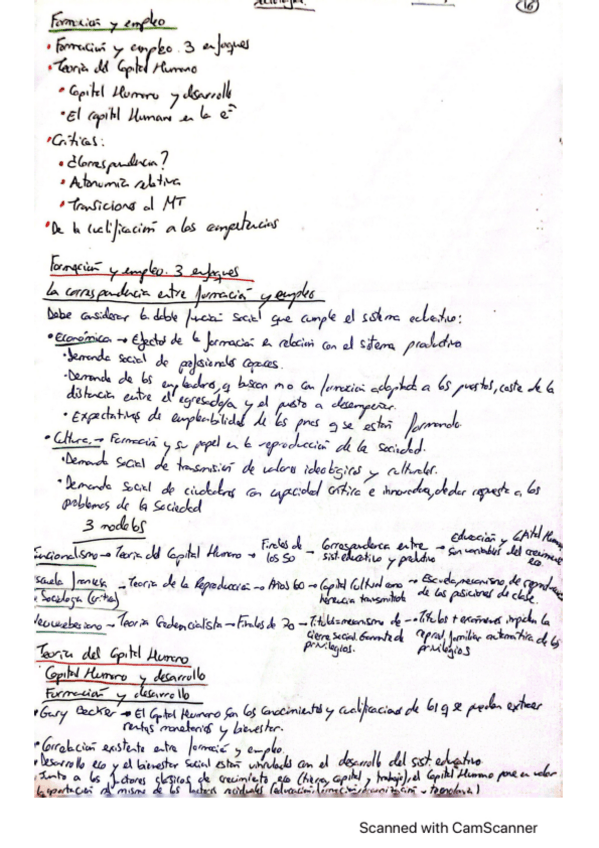 16
Formación y empleo
• Formación y empleo. 3 enfoques
• Teoría del Capital Humano
• Capital Humano y desarrollo
• El capital Humano en la eª
• Críticas:
• ¿Correspondencia?
• Autonomía relativa
• Transiciones al MT
• De la cualificación a las competencias
Formación y empleo. 3 enfoques
La correspondencia entre formación y empleo
Debe considerar la doble función social que cumple el sistema educativo:
• Económica → Efectos de la formación en relación con el sistema productivo
• Demanda social de profesionales capaces.
• Demanda de los empleadores, q buscan mo con formación adaptada a los puestos, coste de la
distancia entre el egresado/a y el puesto a desempeñar.
• Expectativas de empleabilidad de las pnas q se están formando.
• Cultura → Formación y su papel en la reproducción de la sociedad.
• Demanda social de transmisión de valores ideológicos y culturales.
• Demanda social de ciudadanos con capacidad crítica e innovadora, de dar respuesta a los
problemas de la sociedad
3 modelos
Funcionalismo → Teoría del Capital Humano → Finales de los 50 → Correspondencia entre sist. educativo y productivo → Educación y Capital Humano son variables del crecimiento eco.
Escuela francesa de Sociología (Crítica) → Teoría de la Reproducción → Años 60 → Capital Cultural como herencia transmitida → Escuela, mecanismo de reproducción de las posiciones de clase.
Neoweberiano → Teoría Credencialista → Finales de 70 → Títulos mecanismo de cierre social. Garante de privilegios. → Títulos + exámenes impiden la reprod. familiar automática de los privilegios
Teoría del Capital Humano
Capital Humano y desarrollo
Formación y desarrollo
• Gary Becker → El Capital Humano son los conocimientos y cualificaciones de las q se pueden extraer
rentas monetarias y bienestar.
• Correlación existente entre formación y empleo.
• Desarrollo eco y el bienestar social están vinculados con el desarrollo del sist. educativo.
• Junto a los factores clásicos de crecimiento eco (tierra, capital y trabajo), el Capital Humano pone en valor
la aportación al mismo de los factores residuales (educación/formación/organización - tecnología)
Scanned with CamScanner